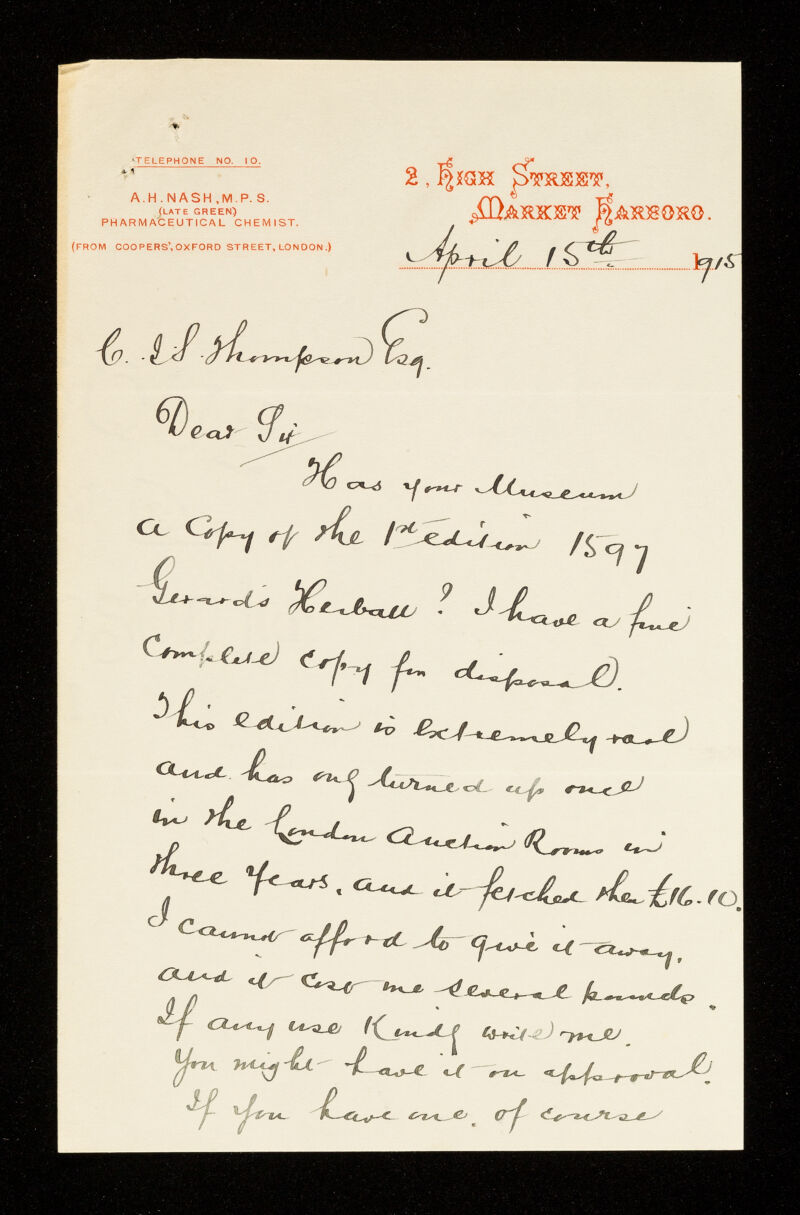 TELEPHONE NO. 10.
A.H. NASH, M.P.S.
(LATE GREEN)
PHARMACEUTICAL CHEMIST.
(FROM COOPERS', OXFORD STREET, LONDON.)
2, High Street,
Market Harboro.
April 15th 1915
C. J S. Thompson Esq.
Dear Sir
Has your Museum
a Copy of the 1st edition 1597
Gerard's Herball? I have a fine
Complete copy for disposal.
This edition is extremely rare
and has only turned up once
in the London Auction Rooms in
three years, and it fetched then £16.10.
I cannot afford to give it away,
and it cost me several pounds.
If any use Kindly write me.
You might have it on approval.
If you have one, of course